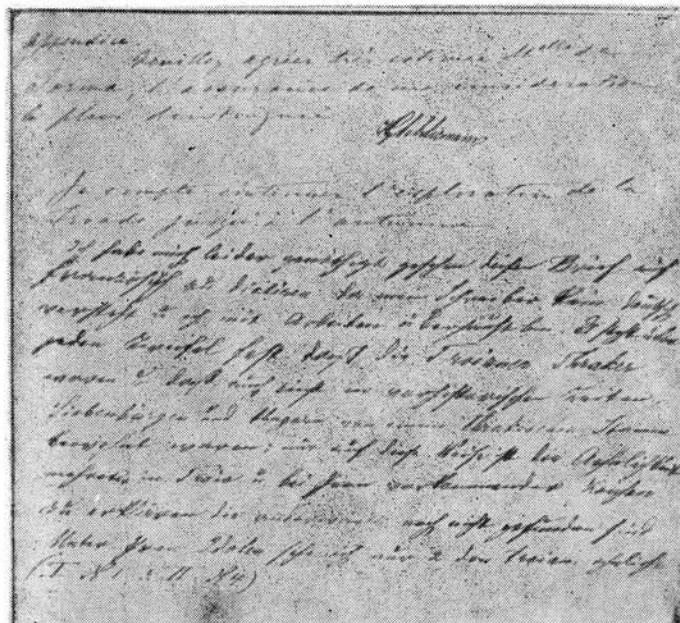 appendice.
Veuillez agréer très estimée Melle de
Torma, l'assurance de ma considération
la plus distinguée
HySchliemann
Je compte continuer l'exploration de la
Troade jusqu'à l'automne
Ich habe mich leider genöthigt gesehen diesen Brief auf
Französisch zu dictiren da mein Schreiber kein deutsch
versteht u ich mit Arbeiten überhäuft bin. Es steht über
jeden Zweifel fest dass die Trojaner Thraker
waren u dass auch einst in vorhistorischen Zeiten
Siebenbürgen und Ungarn von einem Thrakischen Stamm
bewohnt waren; nur auf diese Weise ist die Aehnlichkeit
mehrerer in Troia u bei Ihnen vorkommenden
zu erklären die anderswo noch nicht gefunden sind
Unter Ihren Idolen scheint nur 2 den troian. ähnlich
(T I N 1 & II N 4)